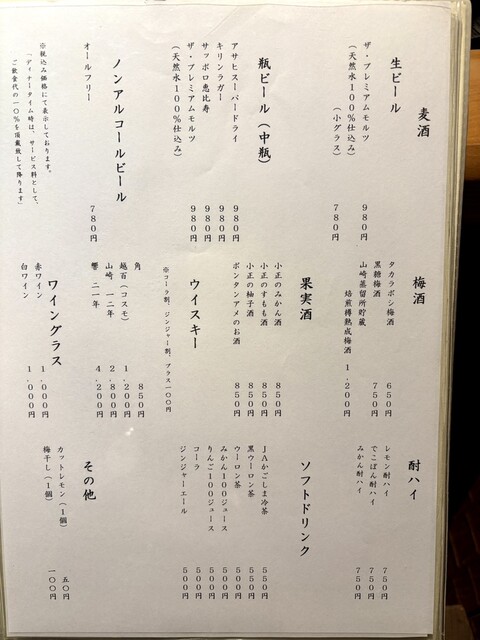 麦酒
生ビール
ザ・プレミアムモルツ 980円
(天然水100%仕込み)
(小グラス) 780円
瓶ビール(中瓶)
アサヒスーパードライ 980円
キリンラガー 980円
サッポロ恵比寿 980円
ザ・プレミアムモルツ 980円
(天然水100%仕込み)
ノンアルコールビール
オールフリー 780円
※税込み価格にて表示しております。
「ディナータイム時は、サービス料として、
ご飲食代の一〇%を頂戴致して降ります」
梅酒
タカラボシ梅酒 650円
黒糖梅酒 750円
山崎蒸留所貯蔵
焙煎樽熟成梅酒 1,200円
果実酒
小正のみかん酒 850円
小正のすもも酒 850円
小正の柚子酒 850円
ボンタンアメのお酒 850円
ウイスキー
※コーラ割、ジンジャー割、プラス一〇〇円
角 850円
越百(コスモ) 1,200円
山崎 一二年 2,800円
響 二一年 4,200円
ワイングラス
赤ワイン 1,000円
白ワイン 1,000円
酎ハイ
レモン酎ハイ 750円
でこぽん酎ハイ 750円
みかん酎ハイ 750円
ソフトドリンク
JAかごしま冷茶 550円
黒ウーロン茶 550円
ウーロン茶 500円
みかん100ジュース 500円
りんご100ジュース 500円
コーラ 500円
ジンジャーエール 500円
その他
カットレモン(1個) 五〇円
梅干し(1個) 一〇〇円